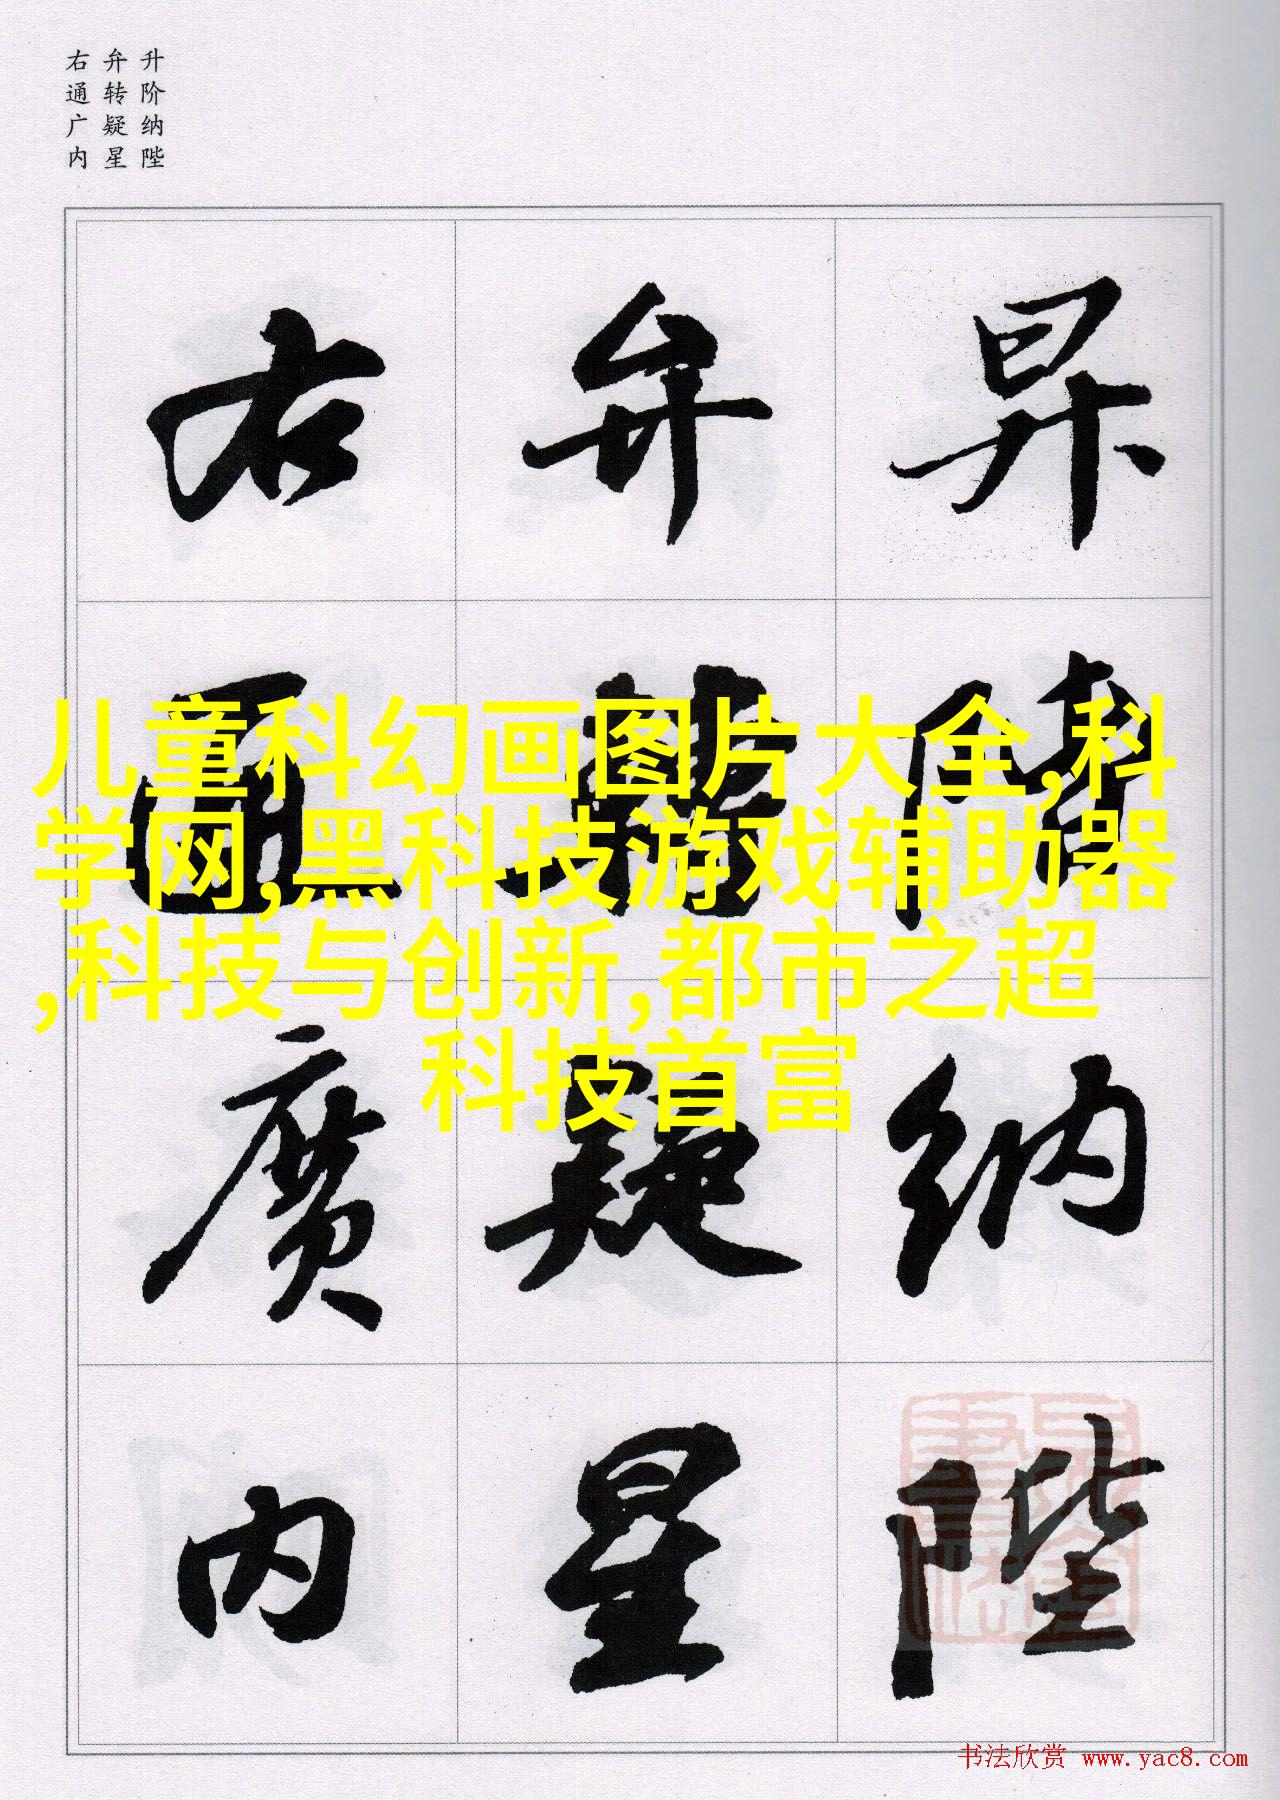 升阶纳陛
弁转疑星
右通广内
昇階納陛
弁轉疑星
右通廣内
儿童科幻画图片大全,科
学网,黑科技游戏辅助器
,科技与创新,都市之超
科技首富
书法欣赏 www.yac8.com